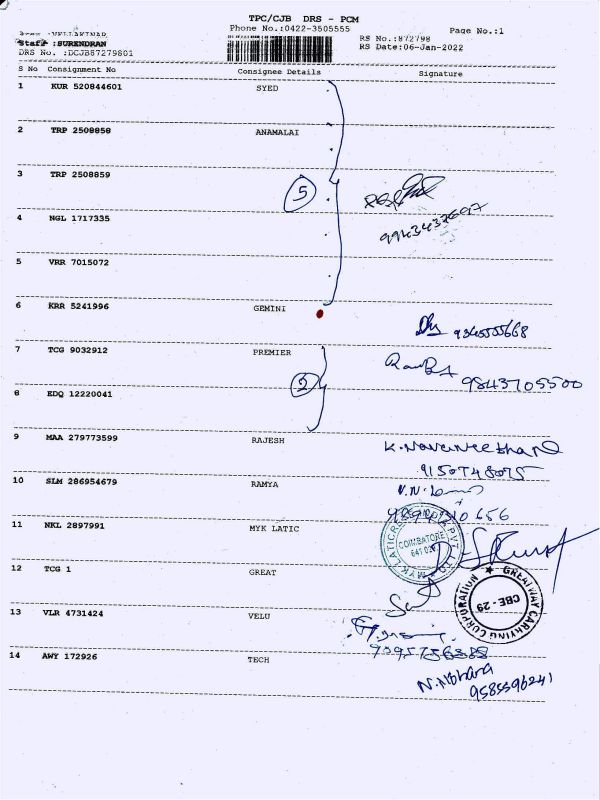 TPC/CJB DRS - PCM
Phone No.:0422-3505555
Page No.:1
RS No.:872798
RS Date:06-Jan-2022
Area :VELLAKINAR
Staff :SURENDRAN
DRS No. :DCJB87279801
S No Consignment No Consignee Details Signature
1 KUR 520844601 SYED
2 TRP 2508858 ANAMALAI
3 TRP 2508859
5
4 NGL 1717335
5 VRR 7015072
6 KRR 5241996 GEMINI
9345555668
7 TCG 9032912 PREMIER
9843705500
2
8 EDQ 12220041
9 MAA 279773599 RAJESH K. Navaneethan
9150748075
10 SLM 286954679 RAMYA
11 NKL 2897991 MYK LATIC
COIMBATORE
12 TCG 1 GREAT
GREATWAY CARRYING CORPORATION
CBE - 29
13 VLR 4731424 VELU
14 AWY 172926 TECH
9585596241